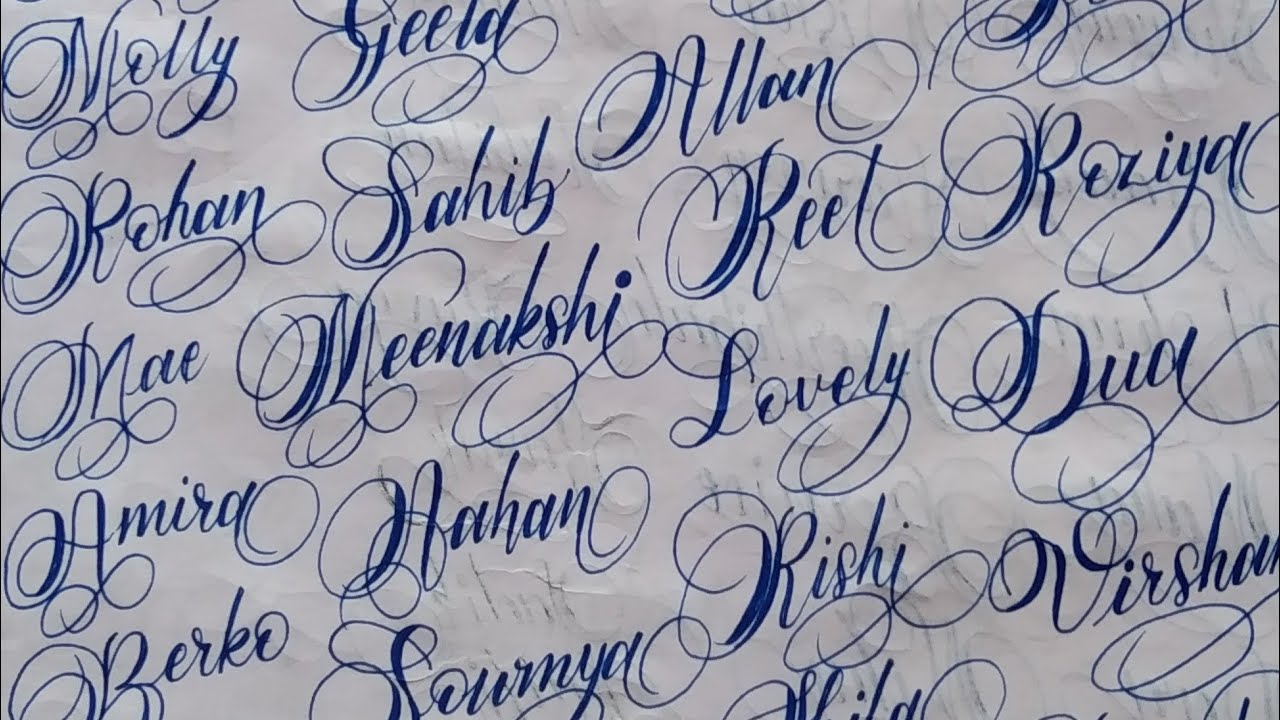 Molly Geeta Allan
Rohan Sahib Reet Roziya
Mae Meenakshi Lovely Dua
Amira Aahan Rishi Virshan
Berko Soumya